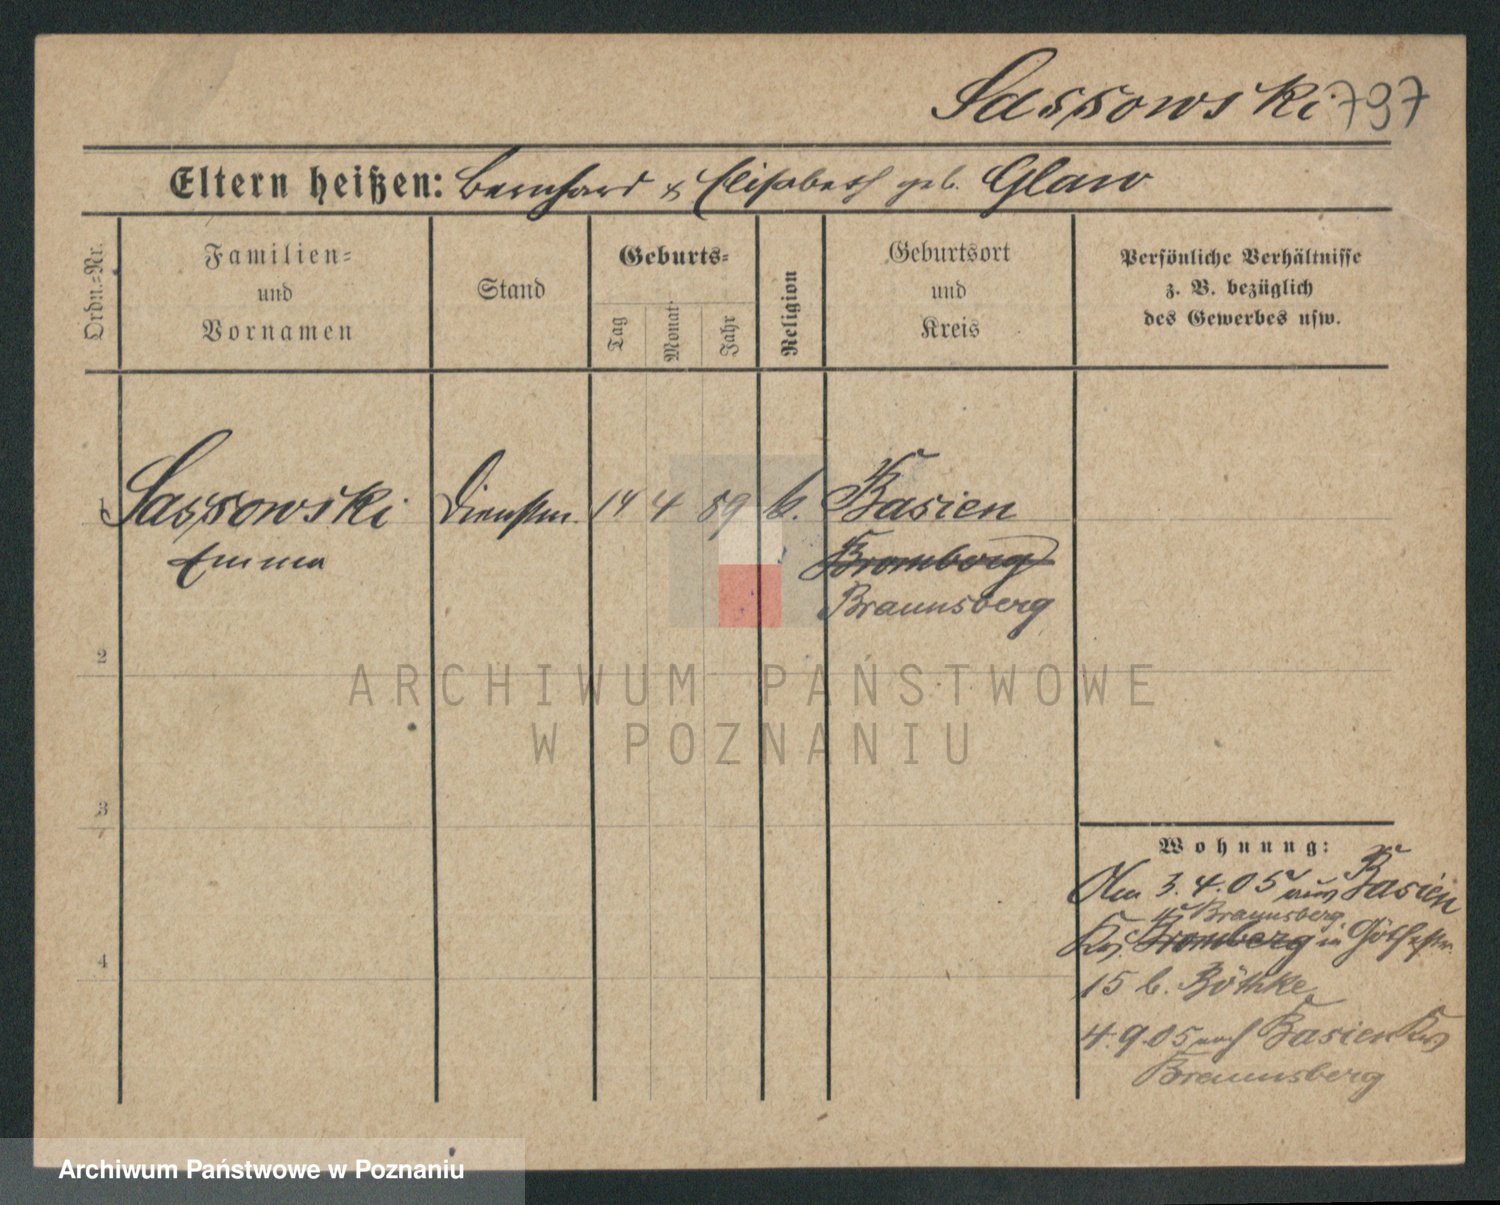 Sassowski 797
Eltern heißen: Bernhard & Elisabeth geb. Glaw
Ordn.-Nr.
Familien-
und
Vornamen
Stand
Geburts-
Tag
Monat
Jahr
Religion
Geburtsort
und
Kreis
Persönliche Verhältnisse
z. B. bezüglich
des Gewerbes usw.
1 Sassowski Dienstm. 14 4 89 k. Basien
Emma Bromberg
Braunsberg
2
ARCHIWUM PAŃSTWOWE
W POZNANIU
3
Wohnung:
Am 3.4.05 aus Basien
Braunsberg
Krs. Bromberg in Göthestr.
4
15 b. Böthke
4.9.05 nach Basien Krs
Braunsberg
Archiwum Państwowe w Poznaniu